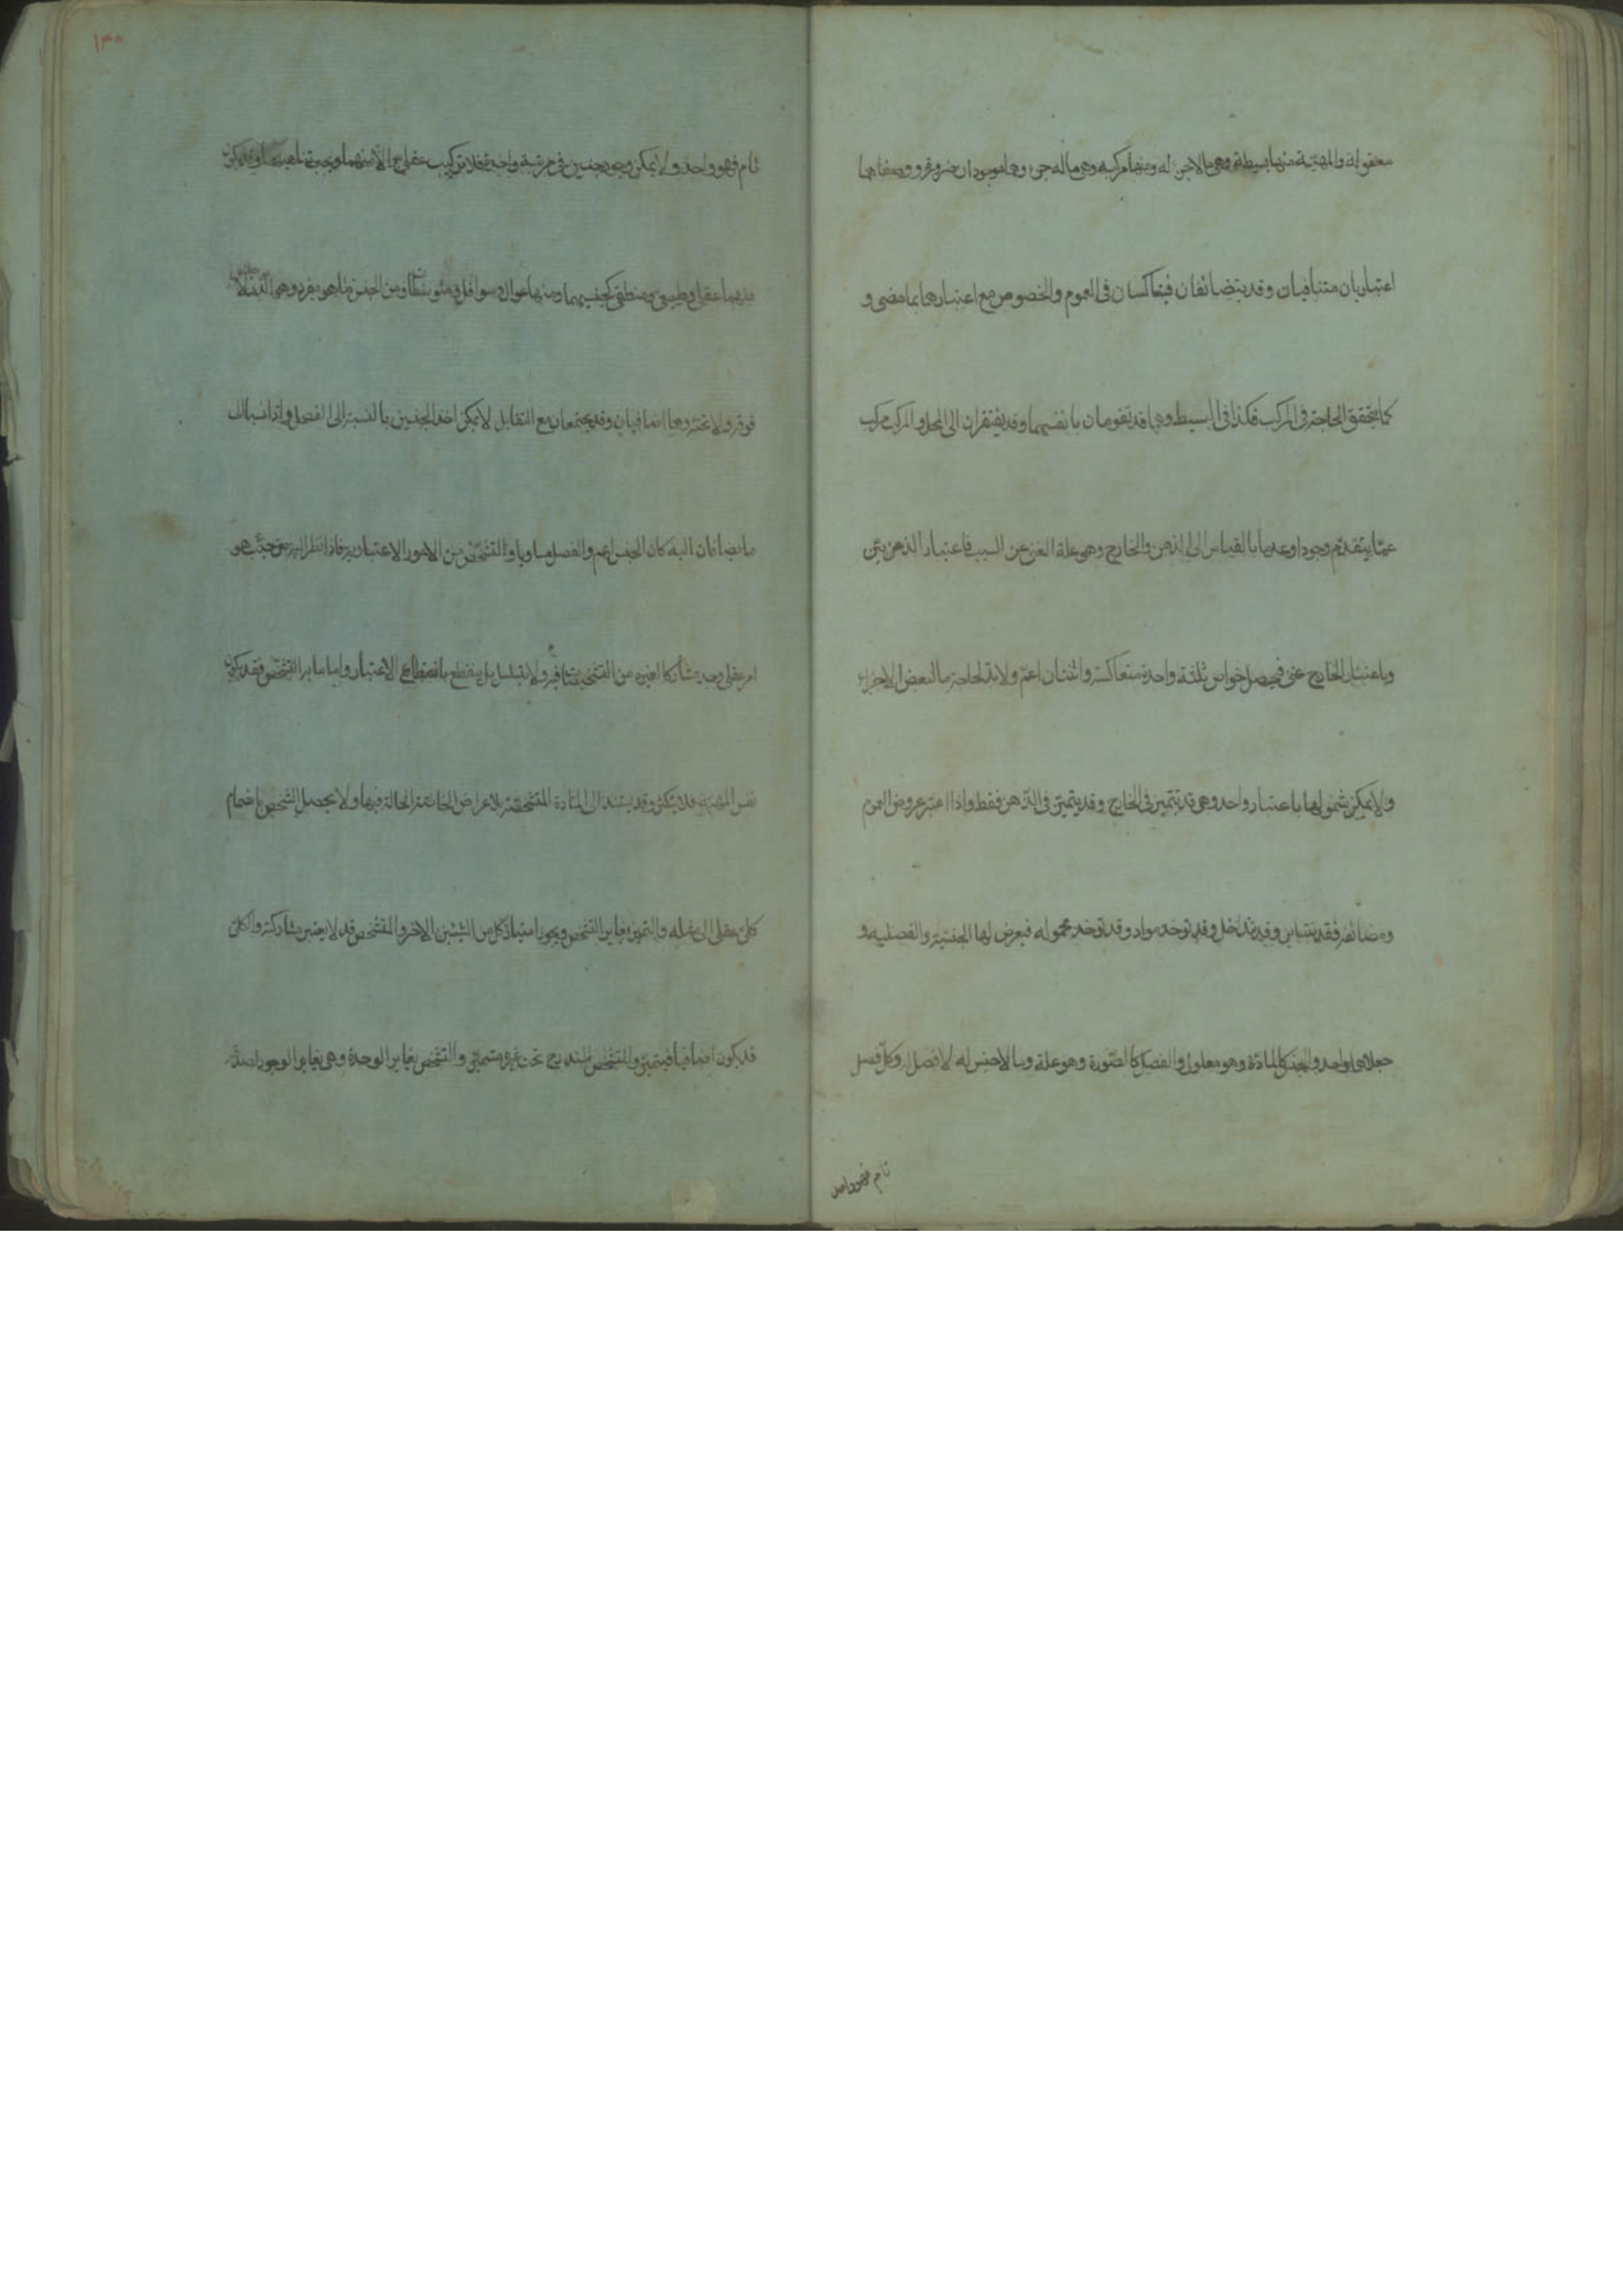 معقوله والمهيّة منها بسيطة وهى مالا جزء له ومنها مركبه وهى ماله جزء وهما موجودان ضرورة ووصفاهما
اعتباريان متنافيان وقد يتضائفان فيتعاكسان فى العموم والخصوص مع اعتبارهما بما مضى و
كما يتحقق الحاجة فى المركب فكذا فى البسيط وهما قد تقومان بانفسهما وقد يفتقران الى المحل والمركب مركب
عمّا يتقدّم وجودا وعدما بالقياس الى الذهن والخارج وهو علة الغنى عن السبب فاعتبار الذهن بيّن
وباعتبار الخارج غنى فيحصل خواص ثلثة واحدة متعاكسة واثنتان اعمّ ولا بد لحاجة ما لبعض الاجزاء
ولا يمكن شمولها باعتبار واحد وهى قد تتميز فى الخارج وقد يتميّز فى الذهن فقط واذا اعتبر عروض العموم
ومضائفه فقد يتباين وقد تتداخل وقد توخذ مواد وقد توخذ محموله فيعرض لها الجنسيّة والفصليه و
جعلاهما واحد والجنس كالمادّة وهو معلول والفصل كالصّورة وهو علة وما لا جنس له لا فصل له وكلّ فصل
تام فهو واحد
١٣٥
تام فهو واحد ولا يمكن وجود جنسين فى مرتبة واحدة فلا تركيب عقلى الّا منهما ويجب تناهيهما وقد يكون
منهما عقلى وطبيعى ومنطقى كجنسيهما ومنهما عوال وسوافل ومتوسطات ومن الجنس ما هو مفرد وهو الذى لا جنس
فوقه ولا تحته وهما اضافيان وقد يجتمعان مع التقابل لا يمكن اخذ الجنسين بالنسبة الى الفصل واذا نسبا الى
ما يضافان اليه كان الجنس اعم والفصل مساويا والتشخّص من الامور الاعتبارية فاذا نظر اليه من حيث هو
امر عقلى وجد مشاركا لغيره من التشخصات فيه ولا يتسلسل بل ينقطع بانقطاع الاعتبار واما ما به التشخّص فقد يكون
نفس المهيّة فلا يتكثر وقد يستند الى المادة المتشخصة بالاعراض الخاصة الحالة فيها ولا يحصل التشخص بانضمام
كلىّ عقلى الى مثله والتميز يغاير التشخص ويجوز امتياز كل من الشيئين بالاخر والمتشخص قد لا يعتبر مشاركته والكلى
قد يكون اضافيا فيتميّز والمتشخص المندرج تحت غيره متميز والتشخص يغاير الوحدة وهى يغاير الوجود لصدقه